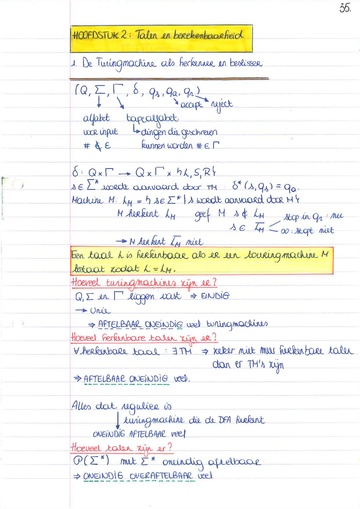 35.
HOOFDSTUK 2: Talen en berekenbaarheid
1. De Turingmachine als herkenner en beslisser
(Q, Σ, Γ, δ, qs, qa, qr)
accept reject
alfabet tapealfabet
voor input dingen die geschreven
# ∉ Σ kunnen worden # ∈ Γ
δ: Q × Γ → Q × Γ × {L,S,R}
s ∈ Σ* wordt aanvaard door TM δ*(s, qs) = qa
Machine M: LM = { s ∈ Σ* | s wordt aanvaard door M}
M herkent LM geef M s ∉ LM stop in qr: nee
s ∈ LM ∞: zegt niet
→ M herkent LM niet
Een taal L is herkenbaar als er een turingmachine M
bestaat zodat L = LM.
Hoeveel turingmachines zijn er?
Q, Σ en Γ liggen vast ⇒ EINDIG
→ Unie
⇒ AFTELBAAR ONEINDIG veel turingmachines
Hoeveel herkenbare talen zijn er?
∀ herkenbare taal: ∃ TM ⇒ zeker niet meer herkenbare talen
dan er TM's zijn
⇒ AFTELBAAR ONEINDIG veel.
Alles dat regulier is
turingmachine die de DFA herkent
ONEINDIG AFTELBAAR veel
Hoeveel talen zijn er?
P(Σ*) met Σ* oneindig aftelbaar
⇒ ONEINDIG OVERAFTELBAAR veel